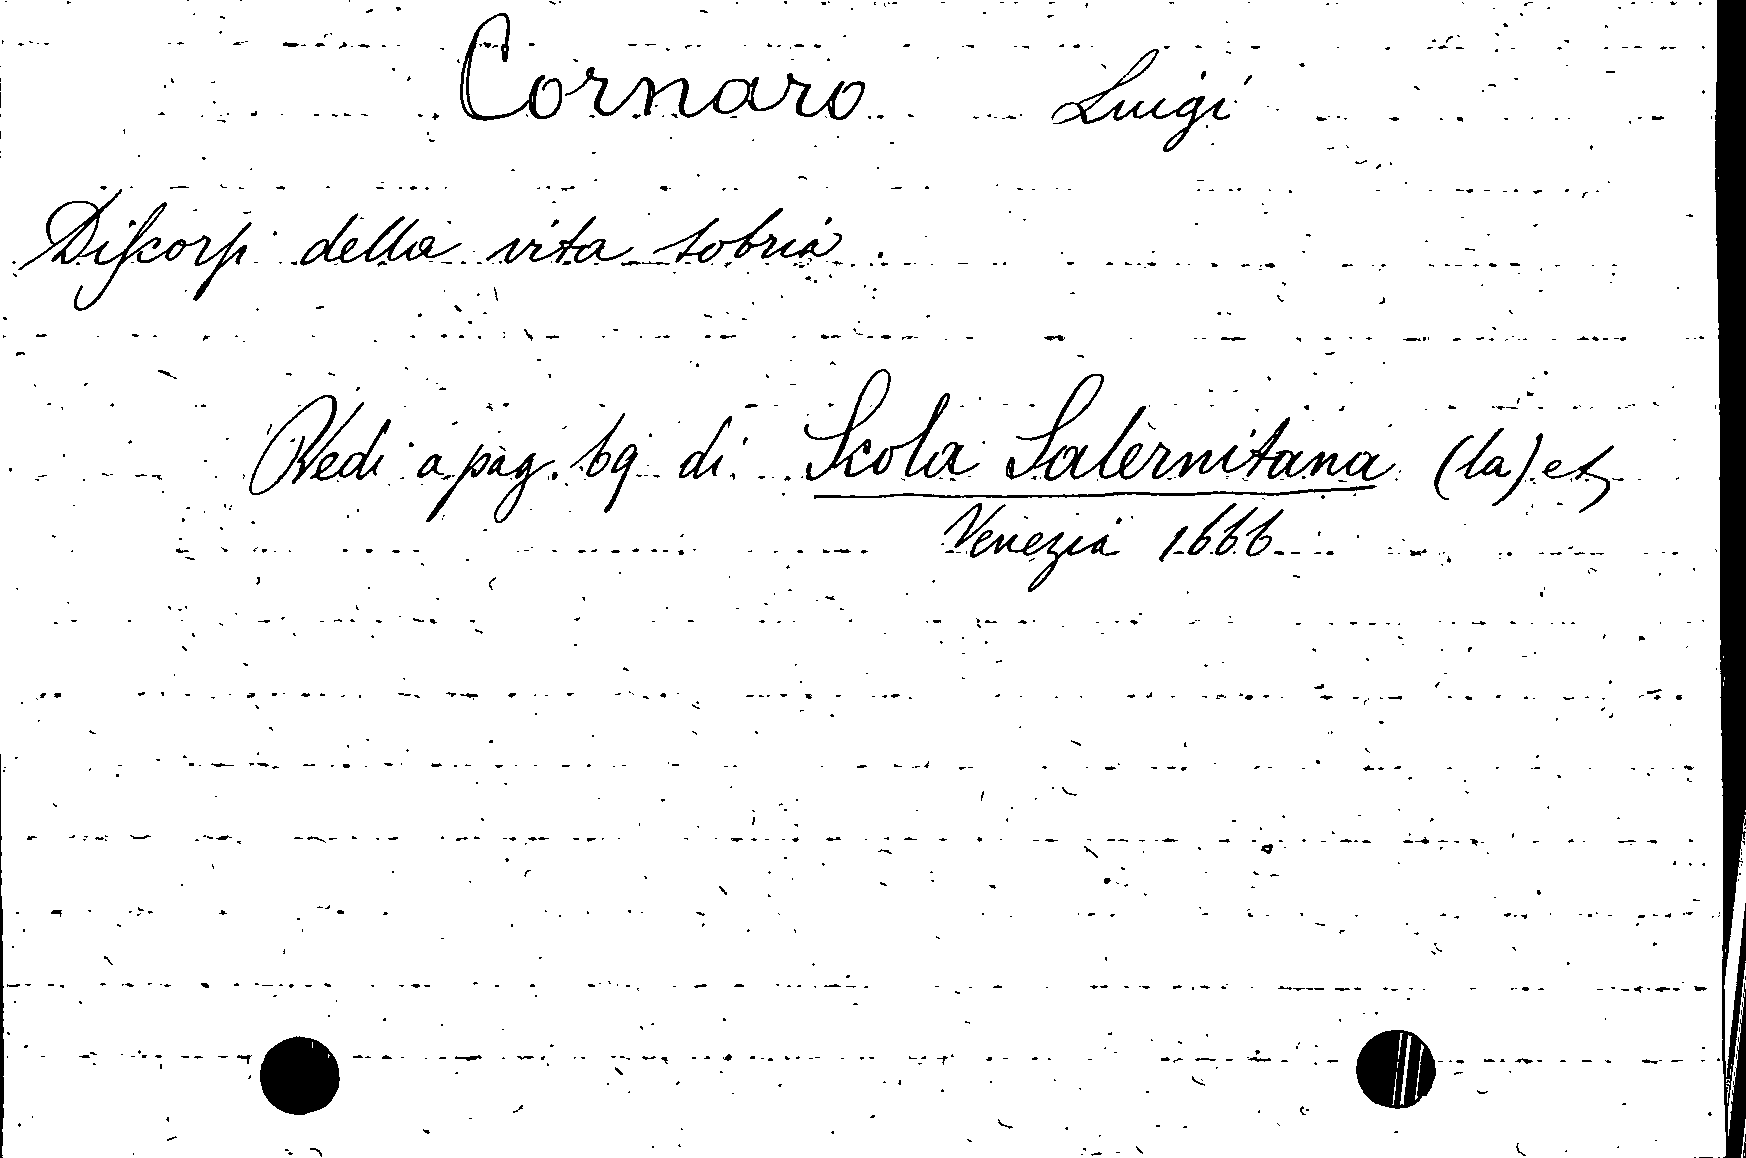 Cornaro Luigi
Discorsi della vita sobria.
Vedi a pag. 69 di Scola Salernitana (la) etc
Venezia 1666